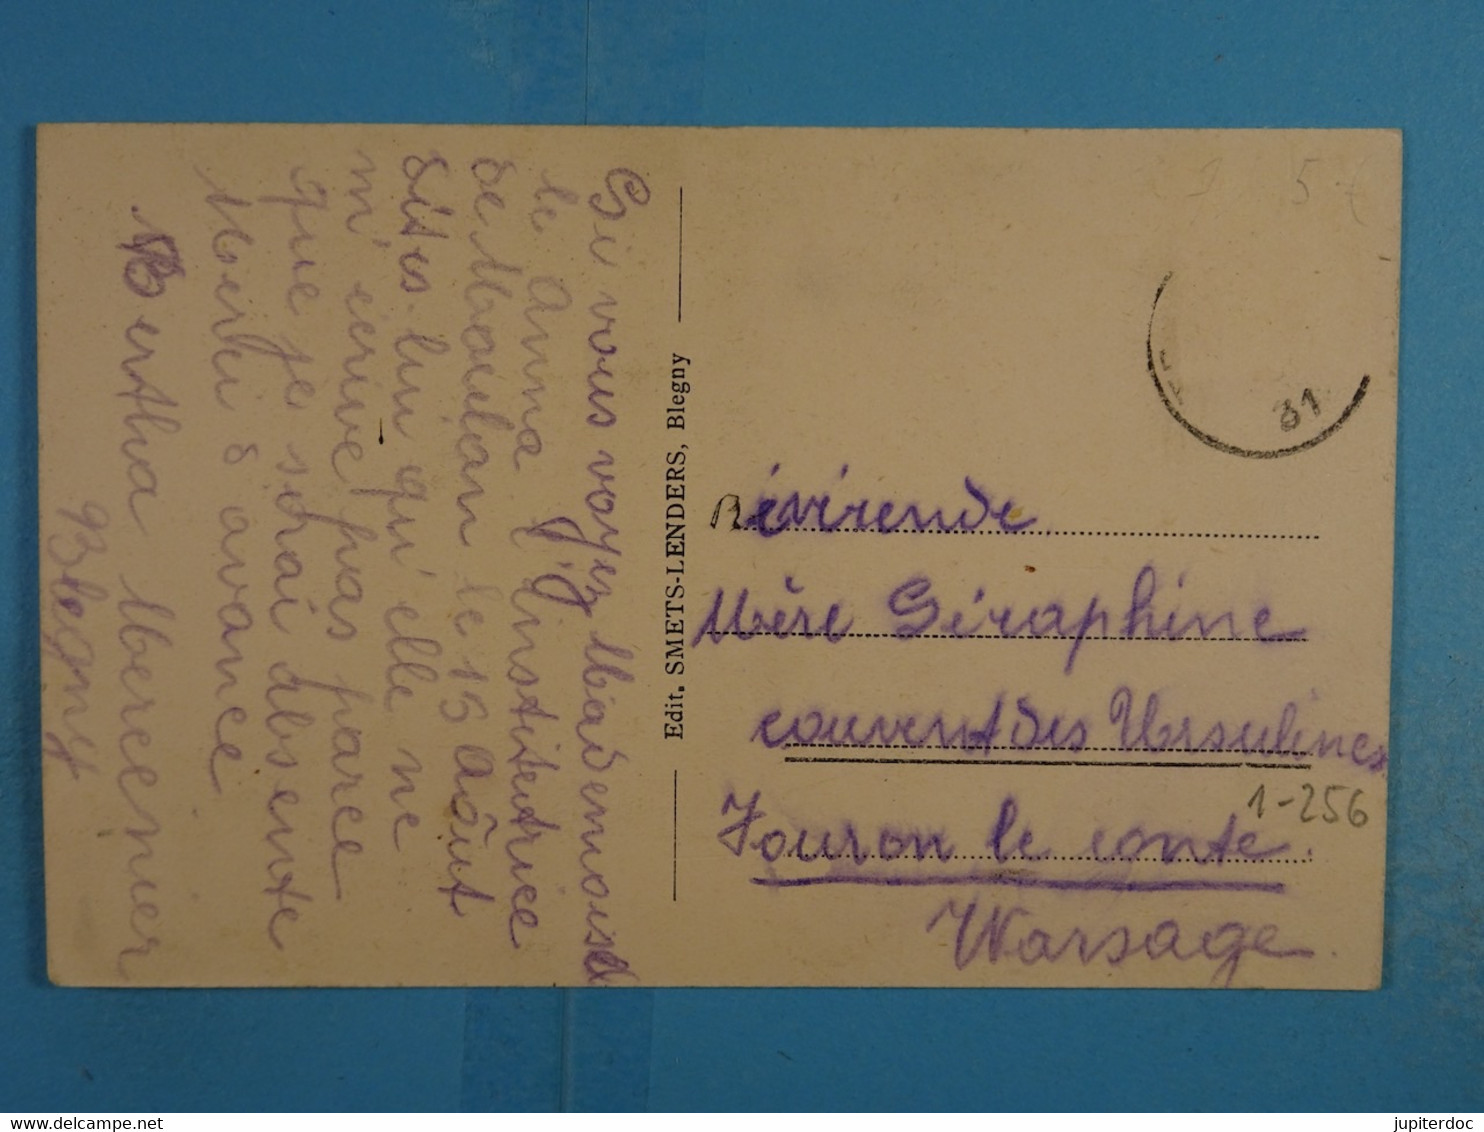 Si vous voyez Mademoisel
le Anna l'institeutrice
de Moulan le 15 Août
dites-lui qu'elle ne
m'écrive pas parce
que je serai absente
Merci d'avance
Bertha Mercenier
Blegny
Edit. SMETS-LENDERS, Blegny
Révérende
Mère Séraphine
couvent des Ursulines
Fouron le conte
Warsage
1-256
31
jupiterdoc